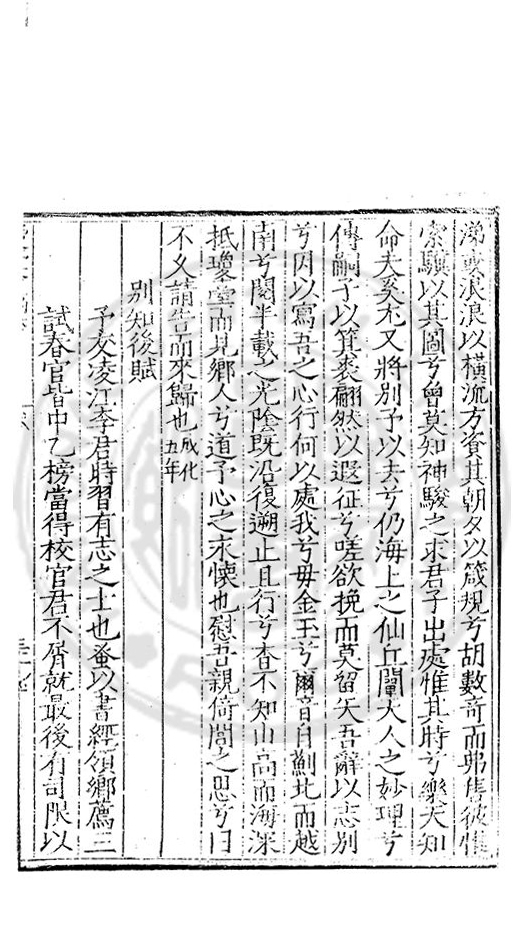 涕浪浪以橫流方資其朝夕以箴規兮胡數奇而弗售彼惟
索驥以其圖兮曾莫知神駿之求君子出處惟其時兮樂天知
命夫奚尤又將別予以去兮仍海上之仙丘闡大人之妙理兮
傳嗣子以箕裘翩然以遐征兮嗟欲挽而莫留矢吾辭以志別
兮因以寫吾之心行何以處我兮毋金玉兮爾音自薊北而越
南兮閱半載之光陰既沿復遡止且行兮杳不知山高而海深
抵瓊臺而見鄉人兮道予心之永懷也慰吾親倚閭之思兮曰
不久請告而來歸也成化五年
別知後賦
予交凌江李君時習有志之士也蚤以書經領鄉薦三
試春官皆中乙榜當得校官君不屑就最後有司限以